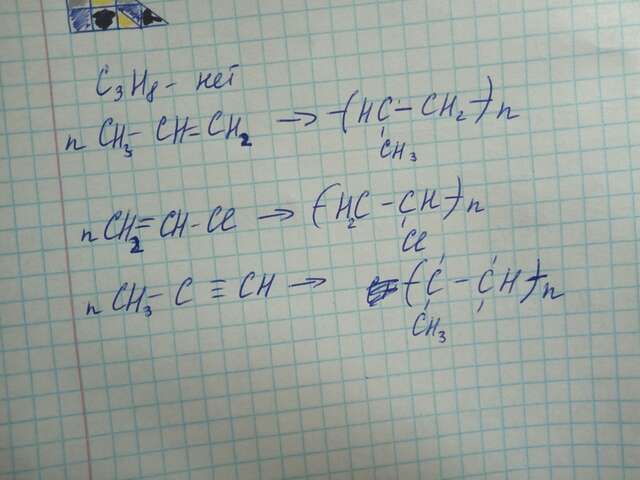 C3H8 - нет
n CH3-CH=CH2 → (-HC-CH2-)n
CH3
nCH2=CH-Cl → (-H2C-CH-)n
Cl
nCH3-C≡CH → (-C-CH-)n
CH3